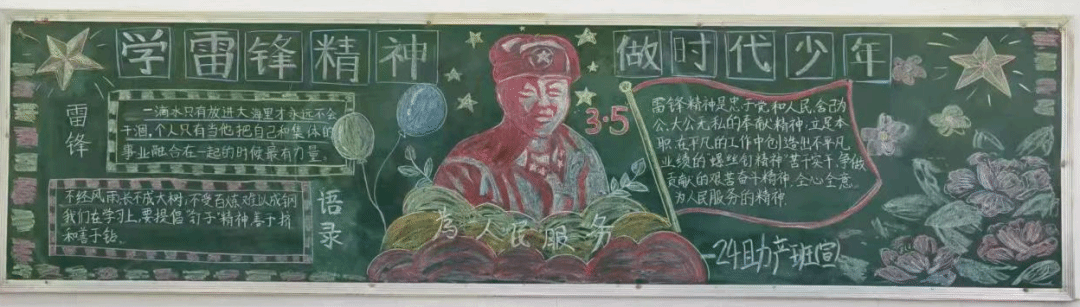 学雷锋精神
做时代少年
雷锋
一滴水只有放进大海里才永远不会
干涸,个人只有当他把自己和集体的
事业融合在一起的时候最有力量。
不经风雨,长不成大树,不受百炼,难以成钢
我们在学习上,要提倡"钉子"精神善于挤
和善于钻。
语录
3·5
雷锋精神是忠于党和人民,舍己为
公、大公无私的奉献精神,立足本
职、在平凡的工作中创造出不平凡
业绩的"螺丝钉精神"苦干实干、争做
贡献的艰苦奋斗精神,全心全意
为人民服务的精神.
為人民服务
—24助产班宣